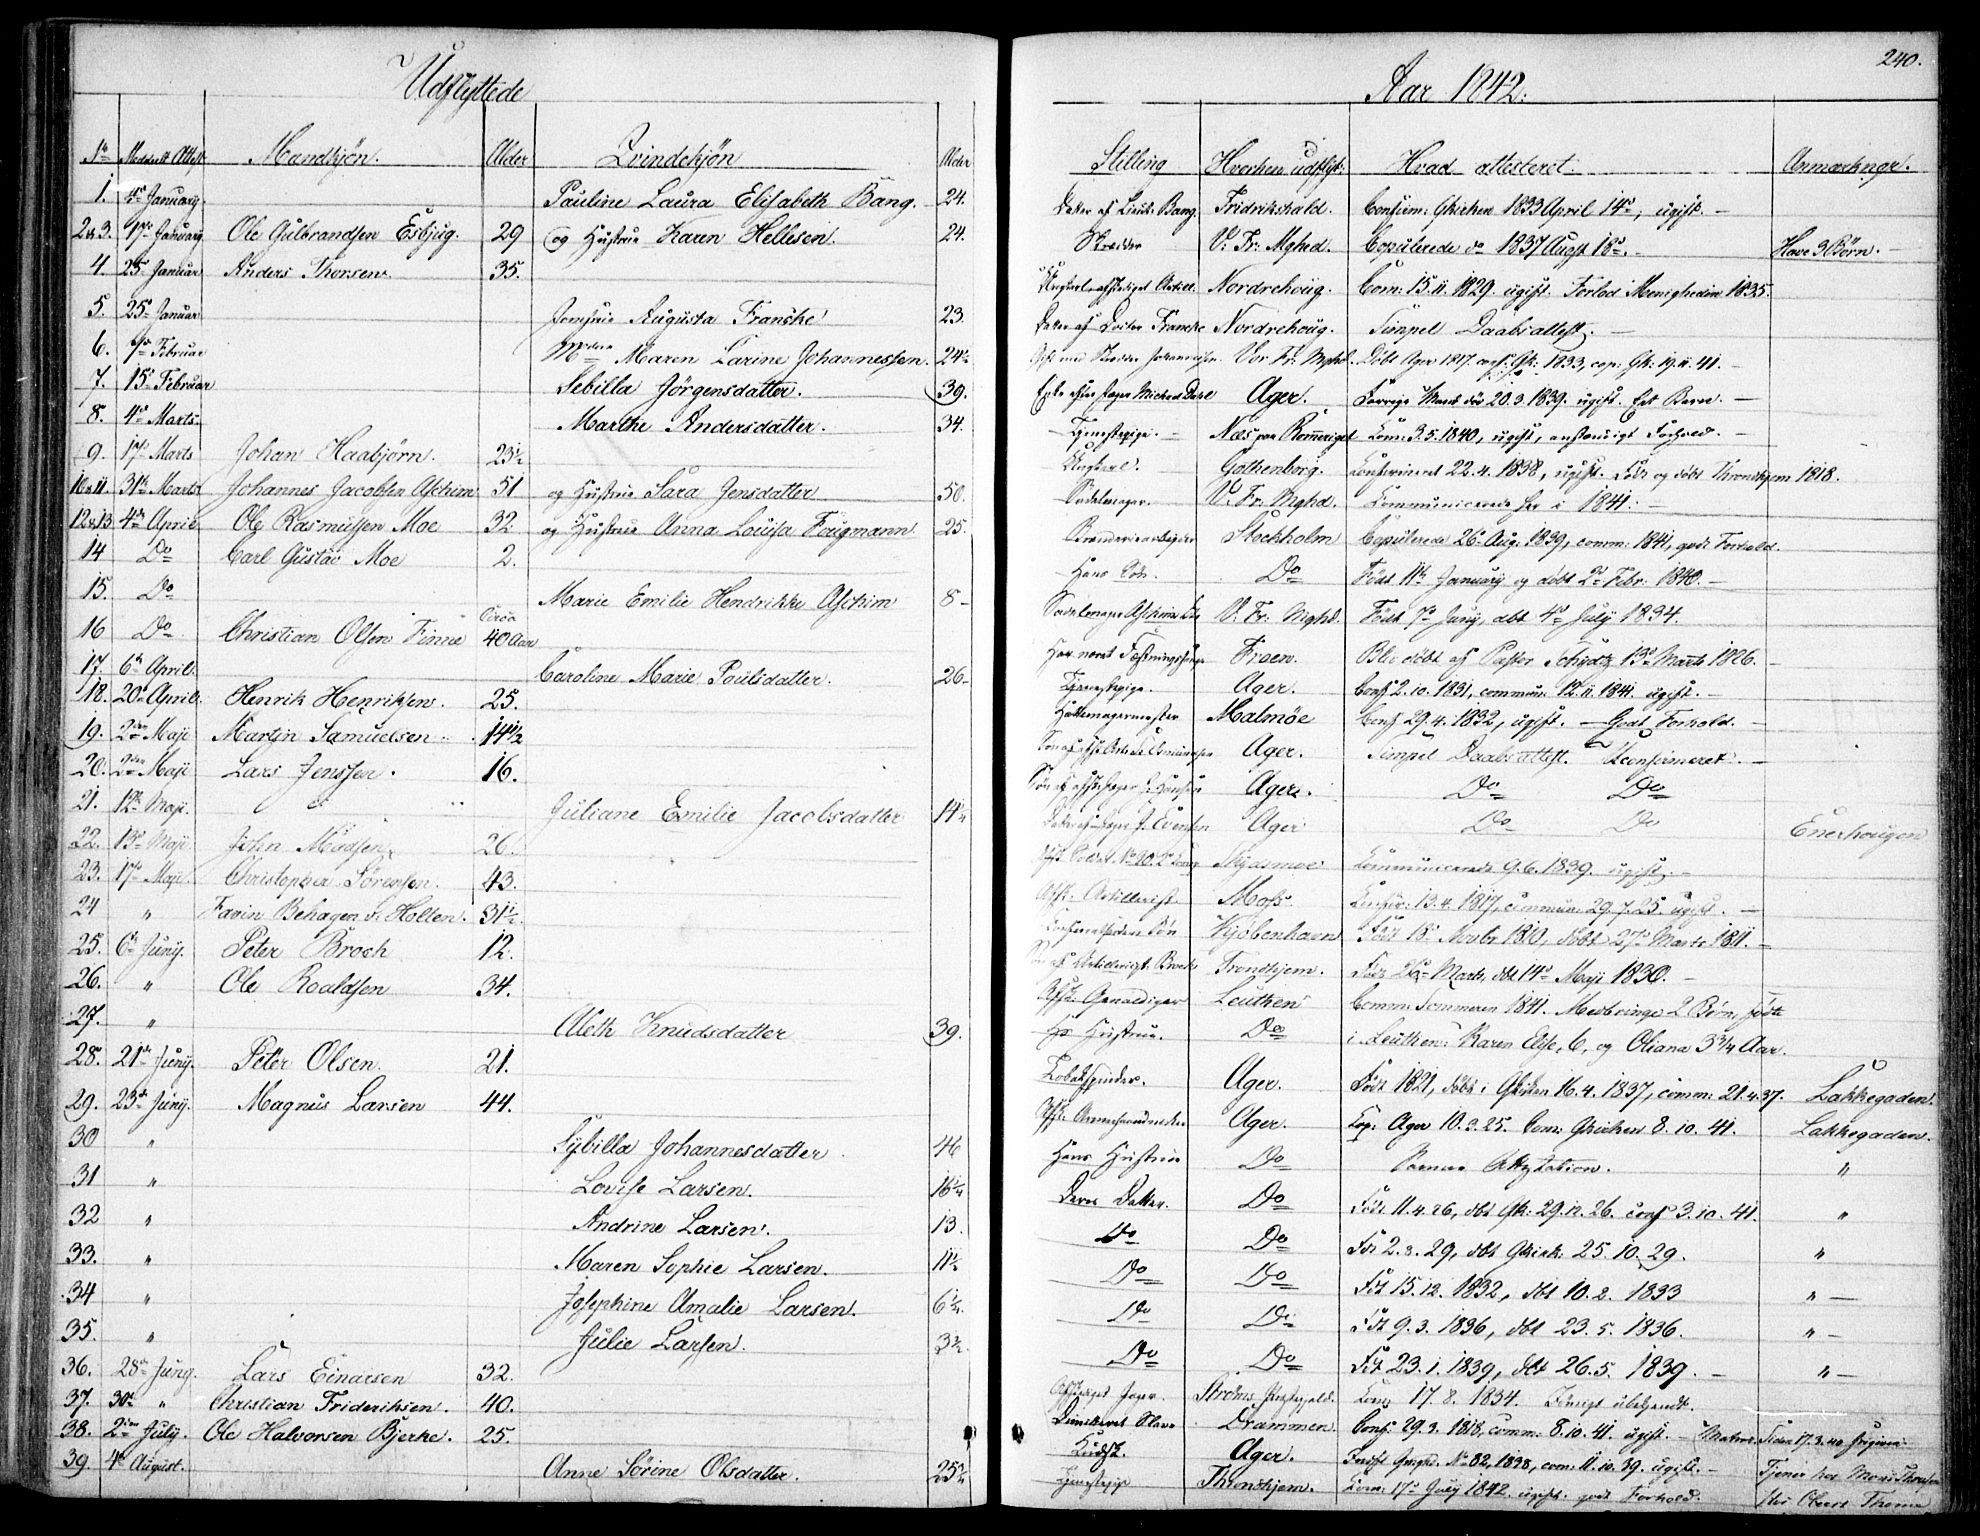 240.
Udflyttede Aar 1842:
No Meddelt Attest Mandkjøn. Alder Qvindekjøn Alder Stilling Hvorhen udflytt: Hvad attesteret. Anmærkngr.
1. 4de January Pauline Laura Elisabeth Bang. 24. Datter af Lieut: Bang. Fridrikshald. Confirm: Gkirken 1833 April 14de, ugift. -
2&3. 7de January Ole Gulbrandsen Esbjug. 29 og Hustrue Karen Hellesen. 24. Skrædder V: Fr: Mghed. Copulerede do 1837 Augst 18de. - Have 3 Børn. -
4. 25de Januar Anders Thorsen. 35. Nordrehoug. Com: 15.11.1829. ugift. Forlod Menigheden 1835.
5. 25de Januar Jomfrue Augusta Franske 23. Datter af Doctor Francke Nordrehoug. Simpel Daabsattest. -
6. 7de Februar Maren Larine Johannessen. 24½ Vor Fr: Mghd. Døbt Ager 1817. conf: Gk: 1833, cop: Gk: 19.11.41. -
7. 15de Februar Sebilla Jörgensdatter. 39. Enke efter Jager Ager. 20.3.1839. ugift. Eet Barn. -
8. 4de Marts. Marthe Andersdatter. 34. Tjenestepige. - Næs paa Romeriget Com: 3.5.1840, ugift, anstændigt Forhold. -
9. 17de Marts Johan Haabjørn. 23½ Ungkarl. Gothenborg. Confirmeret 22.4.1838, ugift. Født og døbt Throndhjem 1818.
10&11. 31te Marts Johannes Jacobsen Aschim 51 og Hustrue Sara Jensdatter 50. Sadelmager. V: Fr: Mghd. Communicerede her i 1841. -
12&13 4de April Ole Rasmussen Moe 32 og Hustrue Anna Louisa Fougmann 25. Stockholm Copulerede 26de Aug. 1839, comm: 1841, godt Forhold.
14 Do Carl Gustav Moe 2. Hans Søn. Do Født 11te January og døbt 2de Febr: 1840. -
15. Do Marie Emilie Hendrikke Aschim 8 - Sadelmager Aschims V: Fr: Mghd. Født 7de Juny, dbt 4de July 1834.
16 Do Christian Olsen Finne Circa 40 Aar Har været Froen. Blev døbt af Pastor Schydtz 13de Marts 1826. -
17. 6te April. Caroline Marie Paulsdatter. 26 - Tjenestepige. Ager. Conf 2.10.1831, commun: 12.11.1841. ugift. -
18. 20de April. Henrik Henriksen. 25. Hattemagermester Malmøe Conf 29.4.1832, ugift. - Godt Forhold. -
19. 2den Maji Martin Samuelsen 14½ Ager. Simpel Daabsattest. Uconfirmeret. -
20. 2den Maji Lars Jenssen. 16. Ager. Do Do
21. 12te Maji. Juliane Emilie Jacobsdatter 14½ Ager Do Do Enerhougen
22. 13de Maji John Madsen 26. Skydsmoe Communicerede 9.6.1839. ugift. -
23. 17de Maji. Christopher Sörensen. 43. Afsk: Artillerist Moss. Confir: 13.4.1817, commun: 29.7.25. ugift. -
24 " Favin Behagen v. Holten. 31½ Kjøbenhavn Født 18de Novbr 1810, døbt 27de Marts 1811. -
25. 6te Juny. Peter Broch 12. Søn af Artillerist Broch Trondhjem. Født Marts, dbt 14de Maji 1830. -
26. " Ole Roaldsen 34. Leuthen Comm: Sommeren 1841. Medbringe 2 Børn, fødte
27. " Aleth Knudsdatter 39. Hs Hustrue. Do i Leuthen: Karen Else, 6, og Oliana 3¾ Aar.
28. 21de Juny. Peter Olsen. 21. Tobakspinder. Ager. Født 1821, døbt i Gkirken 16.4.1837, comm: 21.4.37. Lakkegaden.
29. 23de Juny. Magnus Larsen 44. Ager. Cop: Ager 10.3.25. Com: Gkirken 8.10.41. Lakkegaden.
30 " Sybilla Johannesdatter. 46 Hans Hustrue Do Samme Attestation. "
31 " Lovise Larsen. 16¼ Deres Datter. Do Født 11.4.26, dbt Gk: 29.12.26. conf 3.10.41. "
32 " Andrine Larsen. 13. Do Do Født 2.3.29, dbt Gkirk: 25.10.29. "
33. " Maren Sophie Larsen. 11½ Do Do Født 15.12.1832, dbt 10.2.1833 " -
34 " Josephine Amalie Larsen. 6½. Do Do Født 9.3.1836, dbt 23.5.1836. " -
35. " Julie Larsen. 3½. Do Do Født 23.1.1839, dbt 26.5.1839. - " -
36. 28de Juny. Lars Einarsen 32. Afskediget Jager. Com: 17.8.1834. Iøvrigt ubekjendt.
37. 30te " Christian Frideriksen. 40. Slave Drammen. Conf: 29.3.1818, comm: 8.10.41. ugift. -
38. 2den July. Ole Halvorsen Bjerke. 25. Kudsk. Ager. No 82. 1838, com: 11.10.39. ugift. - Tjener hos
39. 4de August. Anne Sörine Olsdatter. 25¾ Tjenestepige Throndhjem. Com: 17de July 1842. ugift. godt Forhold.